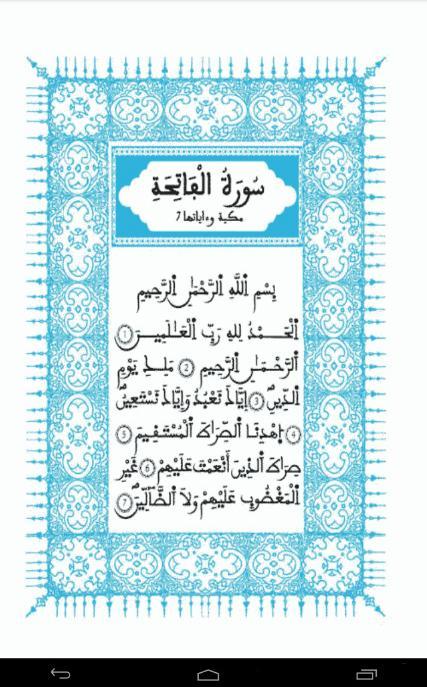 سُورَةُ الْفَاتِحَةِ
مكية وءاياتها 7
بِسْمِ اِ۬للَّهِ اِ۬لرَّحْمَٰنِ اِ۬لرَّحِيمِ
اَ۬لْحَمْدُ لِلهِ رَبِّ اِ۬لْعَٰلَمِينَ 1
اَ۬لرَّحْمَٰنِ اِ۬لرَّحِيمِ 2 مَلِكِ يَوْمِ
اِ۬لدِّينِ 3 إِيَّاكَ نَعْبُدُ وَإِيَّاكَ نَسْتَعِينُ
4 اُ۪هْدِنَا اَ۬لصِّرَٰطَ اَ۬لْمُسْتَقِيمَ 5
صِرَٰطَ اَ۬لذِينَ أَنْعَمْتَ عَلَيْهِمْ 6 غَيْرِ
اِ۬لْمَغْضُوبِ عَلَيْهِمْ وَلَا اَ۬لضَّآلِّينَ 7